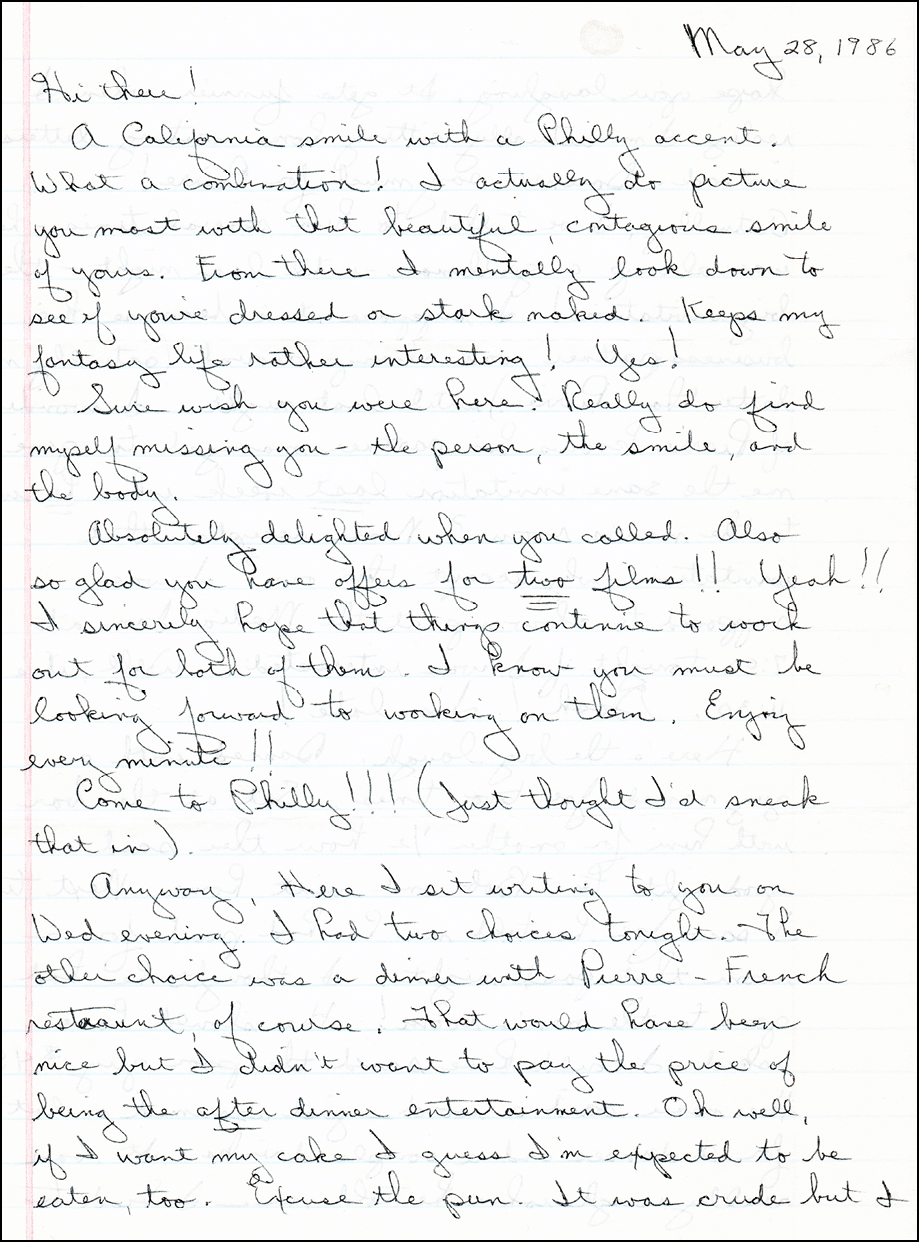 May 28, 1986
Hi there!
A California smile with a Philly accent.
What a combination! I actually do picture
you most with that beautiful, contagious smile
of yours. From there I mentally look down to
see if you're dressed or stark naked. Keeps my
fantasy life rather interesting! Yes!
Sure wish you were here. Really do find
myself missing you - the person, the smile, and
the body.
Absolutely delighted when you called. Also
so glad you have offers for two films!! Yeah!!
I sincerely hope that things continue to work
out for both of them. I know you must be
looking forward to working on them. Enjoy
every minute!!
Come to Philly!!! (Just thought I'd sneak
that in).
Anyway, Here I sit writing to you on
Wed evening. I had two choices tonight. The
other choice was a dinner with Pierre - French
restaurant, of course. That would have been
nice but I didn't want to pay the price of
being the after dinner entertainment. Oh well,
if I want my cake I guess I'm expected to be
eaten, too. Excuse the pun. It was crude but I